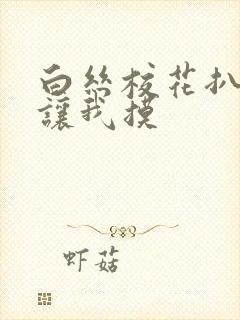 白丝校花扒
讓我摸
虾菇